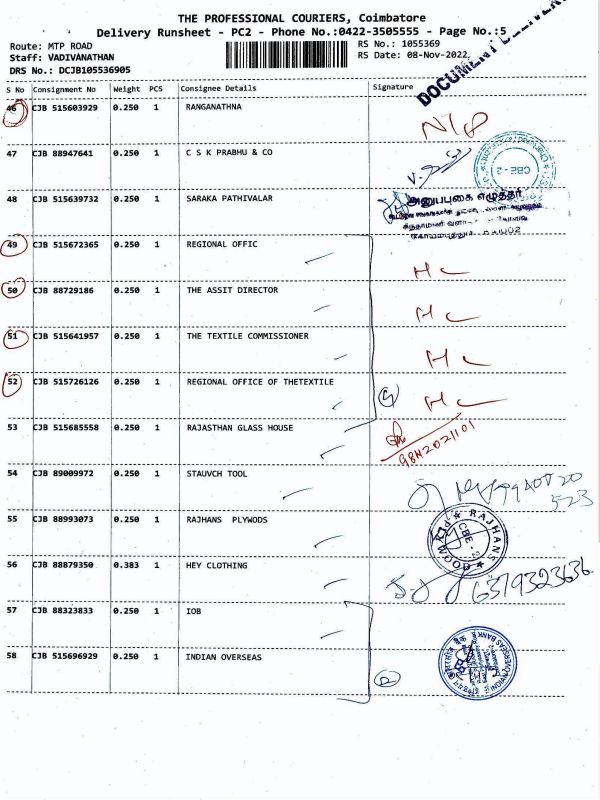 THE PROFESSIONAL COURIERS, Coimbatore
Delivery Runsheet - PC2 - Phone No.:0422-3505555 - Page No.:5
Route: MTP ROAD
RS No.: 1055369
Staff: VADIVANATHAN
RS Date: 08-Nov-2022
DRS No.: DCJB105536905
S No Consignment No Weight PCS Consignee Details Signature
46 CJB 515603929 0.250 1 RANGANATHNA
47 CJB 88947641 0.250 1 C S K PRABHU & CO
CBE-2
48 CJB 515639732 0.250 1 SARAKA PATHIVALAR
அனுபபுகை எழுத்தர்
49 CJB 515672365 0.250 1 REGIONAL OFFIC
HC
50 CJB 88729186 0.250 1 THE ASSIT DIRECTOR
HC
51 CJB 515641957 0.250 1 THE TEXTILE COMMISSIONER
HC
52 CJB 515726126 0.250 1 REGIONAL OFFICE OF THETEXTILE
HC
53 CJB 515685558 0.250 1 RAJASTHAN GLASS HOUSE
9842021101
54 CJB 89009972 0.250 1 STAUVCH TOOL
55 CJB 88993073 0.250 1 RAJHANS PLYWODS
RAJHANS PLYWOOD
CBE-2
56 CJB 88879350 0.383 1 HEY CLOTHING
6379323636
57 CJB 88323833 0.250 1 IOB
58 CJB 515696929 0.250 1 INDIAN OVERSEAS
INDIAN OVERSEAS BANK